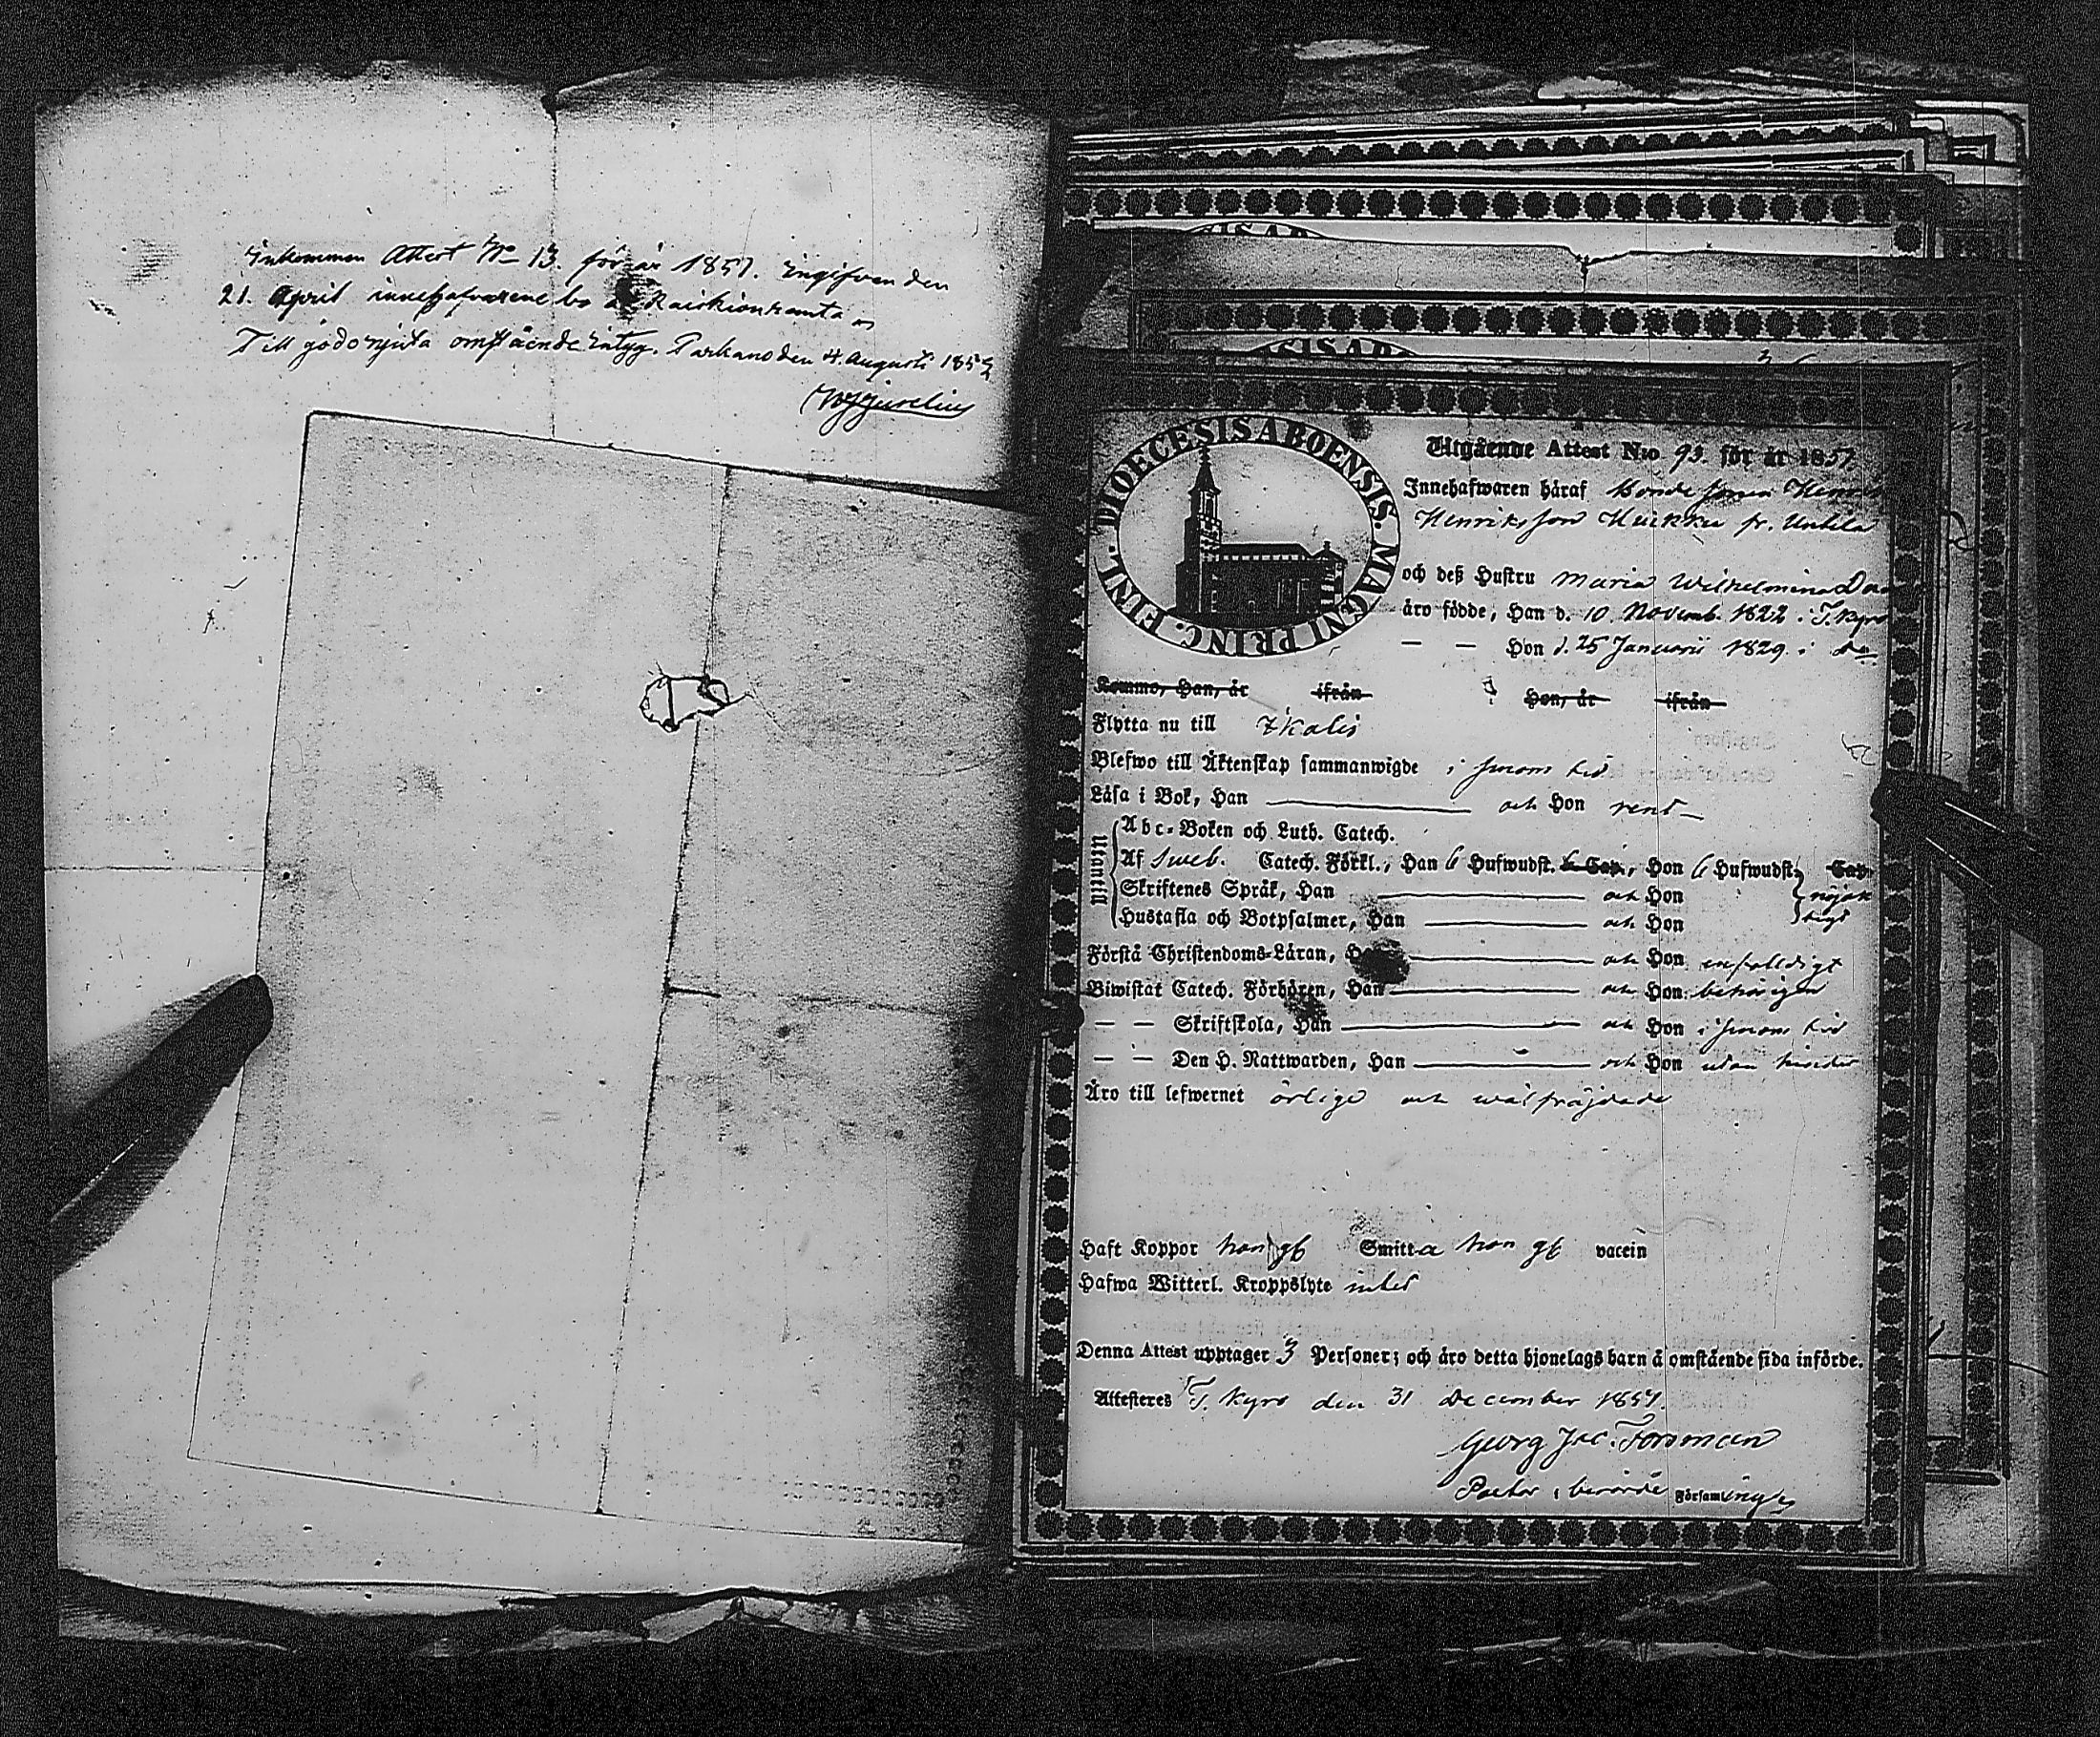 Inkommen Attest No 13. för år 1857. Ingifven den
21. April innehafvarene bo å Raiskionkanta
Till godo njuta omstående intyg. Parkano den 4. Augusti
DIOECESIS ABOENSIS. MAGNI PRINC. FINL.
Utgående Attest N:o 93. för år 1857.
Innehafwaren häraf Bonde sonen Henrik
Henriksson Kuckku fr. Untila
och deß Hustru Maria Wilhelmina
äro födde, Han d. 10 Novemb. 1822 i T. Kyro
— — Hon d. 25 Januarii 1829 i do
Kommo, Han, år ifrån Hon, år ifrån
Flytta nu till Ikalis
Blefwo till Äktenskap sammanwigde i sinom tid
Läsa i Bok, Han — och Hon rent
Utanill
Abc-Boken och Luth. Catech.
Af Sweb. Catech. Förkl., Han 6 Hufwudst. 6 Cap., Hon 6 Hufwudst. Cap.
Skriftenes Språk, Han — och Hon nöjak
Hustafla och Botpsalmer, Han — och Hon tigt
Förstå Christendoms-Läran, — och Hon enfaldigt
Biwistat Catech. Förhören, Han — och Hon behörigen
— — Skriftskola, Han — och Hon i sinom tid
— — Den H. Nattwarden, Han — och Hon utan hinder
Äro till lefwernet ärlige och wälfräjdade
Haft Koppor hon gf Smitta han gf vaccin
Hafwa Witterl. Kroppslyte intet
Denna Attest upptager 3 Personer; och äro detta hjonelags barn å omstående sida införde.
Attesteres T. Kyro den 31 December 1857.
Georg Jac. Forsman
Pastor i berörde Församlingen